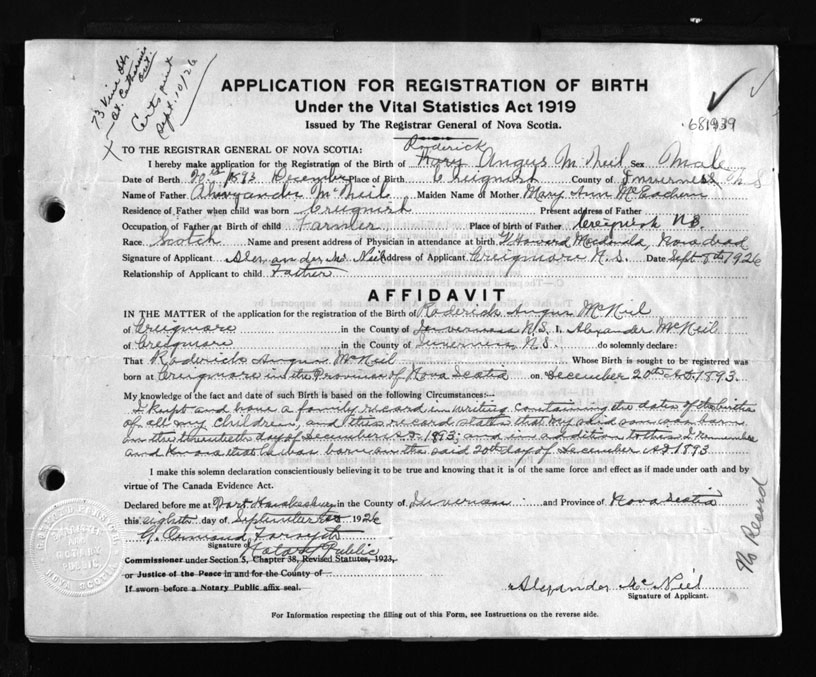 73 Vine St.
St. Catharines
Ont.
Cert & print
Sept. 10/26
APPLICATION FOR REGISTRATION OF BIRTH
Under the Vital Statistics Act 1919
Issued by The Registrar General of Nova Scotia.
681939
TO THE REGISTRAR GENERAL OF NOVA SCOTIA:
Roderick
I hereby make application for the Registration of the Birth of Rory Angus McNeil Sex Male
Date of Birth 20th 1893 December Place of Birth Creignish County of Inverness N S
Name of Father Alexander McNeil Maiden Name of Mother Mary Ann McEachern
Residence of Father when child was born Creignish Present address of Father
Occupation of Father at Birth of child Farmer Place of birth of Father Creignish N.S.
Race. Scotch Name and present address of Physician in attendance at birth Howard Macdonald, now dead
Signature of Applicant Alexander Mc Neil Address of Applicant Creigmore N.S. Date Sept 8th 1926
Relationship of Applicant to child Father
AFFIDAVIT
IN THE MATTER of the application for the registration of the Birth of Roderick Angus McNeil
of Creigmore in the County of Inverness N.S. I, Alexander McNeil
of Creigmore in the County of Inverness N.S. do solemnly declare:
That Roderick Angus McNeil Whose Birth is sought to be registered was
born at Creigmore in the Province of Nova Scotia on December 20th A.D. 1893.
My knowledge of the fact and date of such Birth is based on the following Circumstances:--
I kept and have a family record in writing containing the dates of the births
of all my children, and this record states that my said son was born
on the twentieth day of December A.D. 1893; and in addition to this I remember
and know that he was born on the said 20th day of December A.D. 1893
I make this solemn declaration conscientiously believing it to be true and knowing that it is of the same force and effect as if made under oath and by
virtue of The Canada Evidence Act.
Declared before me at Port Hawkesbury in the County of Inverness and Province of Nova Scotia
this eighth day of September A.D. 1926
G. Ormond Forsyth
Signature of Notary Public
Commissioner under Section 5, Chapter 38, Revised Statutes, 1923,
or Justice of the Peace in and for the County of
If sworn before a Notary Public affix seal.
Alexander Mc Neil
Signature of Applicant.
For Information respecting the filling out of this Form, see Instructions on the reverse side.
No Record
NOTARY
PUBLIC
NOVA SCOTIA